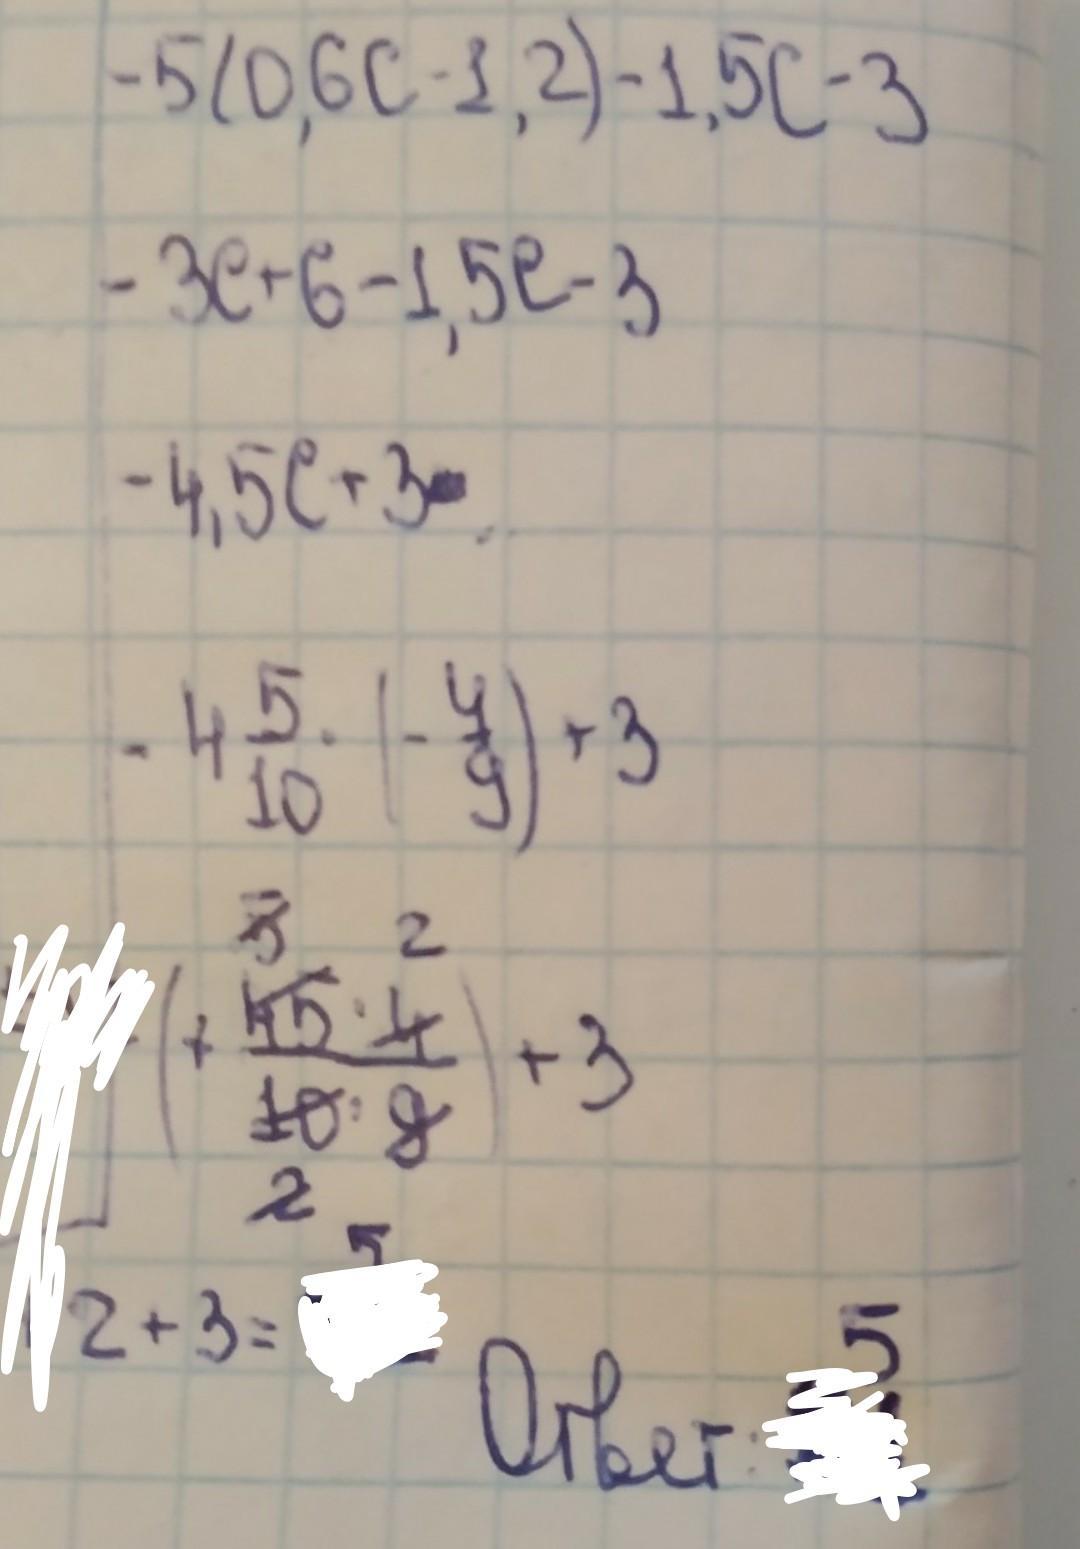 -5(0,6c-1,2)-1,5c-3
-3c+6-1,5c-3
-4,5c+3
-4 5/10 · (-4/9) + 3
5 2
(+ 45·4 / 10·9) + 3
2
2+3= 5
Ответ: 5